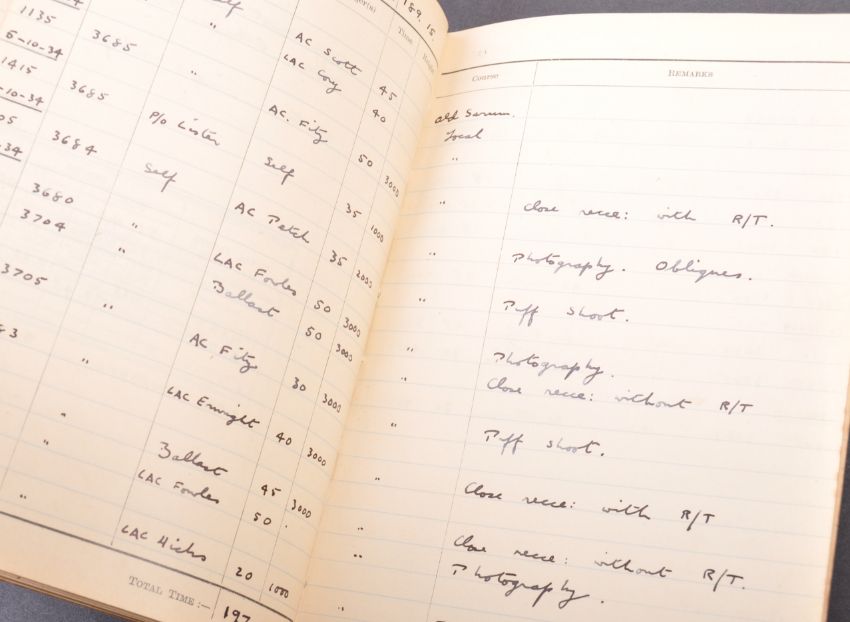 Self 189.15
1135 3685 " AC Scott 45
6-10-34 LAC Coy 40
1415 3685 " AC. Fitz 50 3000
-10-34 P/O Lister Self 35 1000
05 3684 Self AC Patch 35 2000
.34
3680 " LAC Fowles 50 3000
3704 " Ballast 50 3000
3705 " AC. Fitz 30 3000
83 " LAC Enright 40 3000
" Ballast 45 3000
" LAC Fowles 50
" LAC Hicks 20 1000
TOTAL TIME:— 197
Time
Course REMARKS
Old Sarum.
Local
"
" Close recce: with R/T.
" Photography. Obliques.
" Puff shoot.
" Photography.
" Close recce: without R/T
" Puff shoot.
" Close recce: with R/T
" Close recce: without R/T.
" Photography.
"